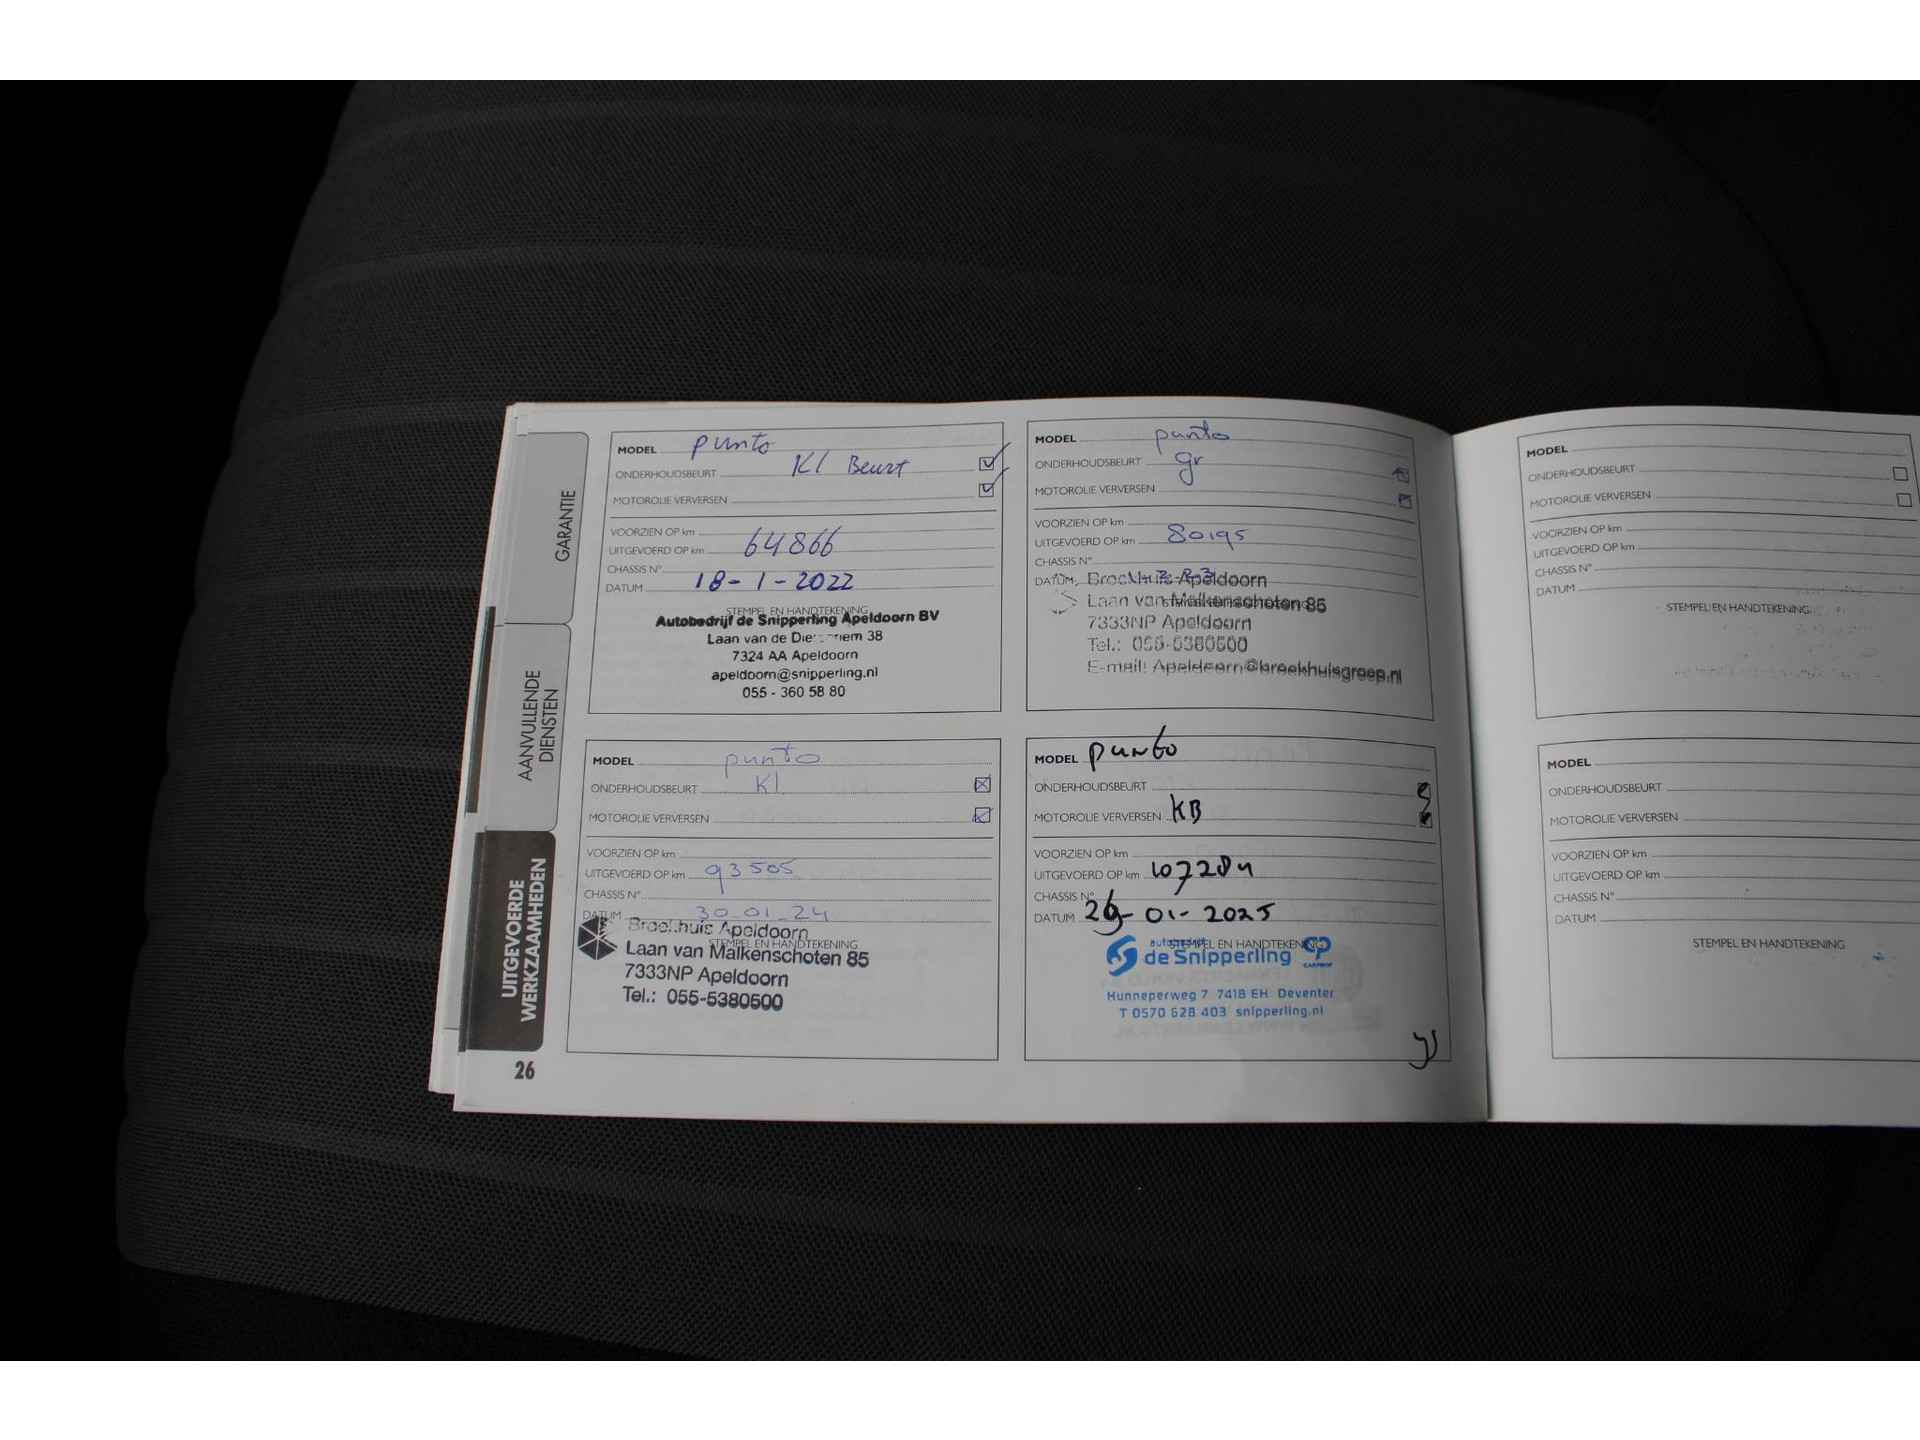 GARANTIE
AANVULLENDE
DIENSTEN
UITGEVOERDE
WERKZAAMHEDEN
26
MODEL punto
ONDERHOUDSBEURT Kl Beurt
MOTOROLIE VERVERSEN
VOORZIEN OP km
UITGEVOERD OP km 64866
CHASSIS N°
DATUM 18-1-2022
STEMPEL EN HANDTEKENING
Autobedrijf de Snipperling Apeldoorn BV
Laan van de
7324 AA Apeldoorn
apeldoorn@snipperling.nl
055 - 360 58 80
MODEL punto
ONDERHOUDSBEURT gr
MOTOROLIE VERVERSEN
VOORZIEN OP km
UITGEVOERD OP km 80195
CHASSIS N°
DATUM
Broekhuis Apeldoorn
Laan van Malkenschoten 85
7333NP Apeldoorn
Tel.: 055-5380500
E-mail: Apeldoorn@broekhuisgroep.nl
MODEL punto
ONDERHOUDSBEURT Kl
MOTOROLIE VERVERSEN
VOORZIEN OP km
UITGEVOERD OP km 93505
CHASSIS N°
DATUM 30-01-24
STEMPEL EN HANDTEKENING
Broekhuis Apeldoorn
Laan van Malkenschoten 85
7333NP Apeldoorn
Tel.: 055-5380500
MODEL punto
ONDERHOUDSBEURT
MOTOROLIE VERVERSEN KB
VOORZIEN OP km
UITGEVOERD OP km 107284
CHASSIS N°
DATUM -01-2025
STEMPEL EN HANDTEKENING
autobedrijf
de Snipperling
CP
CARPROF
Hunneperweg 7 7418 EH Deventer
T 0570 628 403 snipperling.nl
MODEL
ONDERHOUDSBEURT
MOTOROLIE VERVERSEN
VOORZIEN OP km
UITGEVOERD OP km
CHASSIS N°
DATUM
STEMPEL EN HANDTEKENING
MODEL
ONDERHOUDSBEURT
MOTOROLIE VERVERSEN
VOORZIEN OP km
UITGEVOERD OP km
CHASSIS N°
DATUM
STEMPEL EN HANDTEKENING